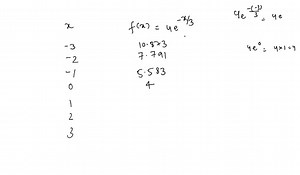 x f(x) = 4e^{-x/3}
-3 10.873
-2 7.791
-1 5.583
0 4
1
2
3
4e^{-(-1)/3} = 4e
4e^0 = 4×1=4